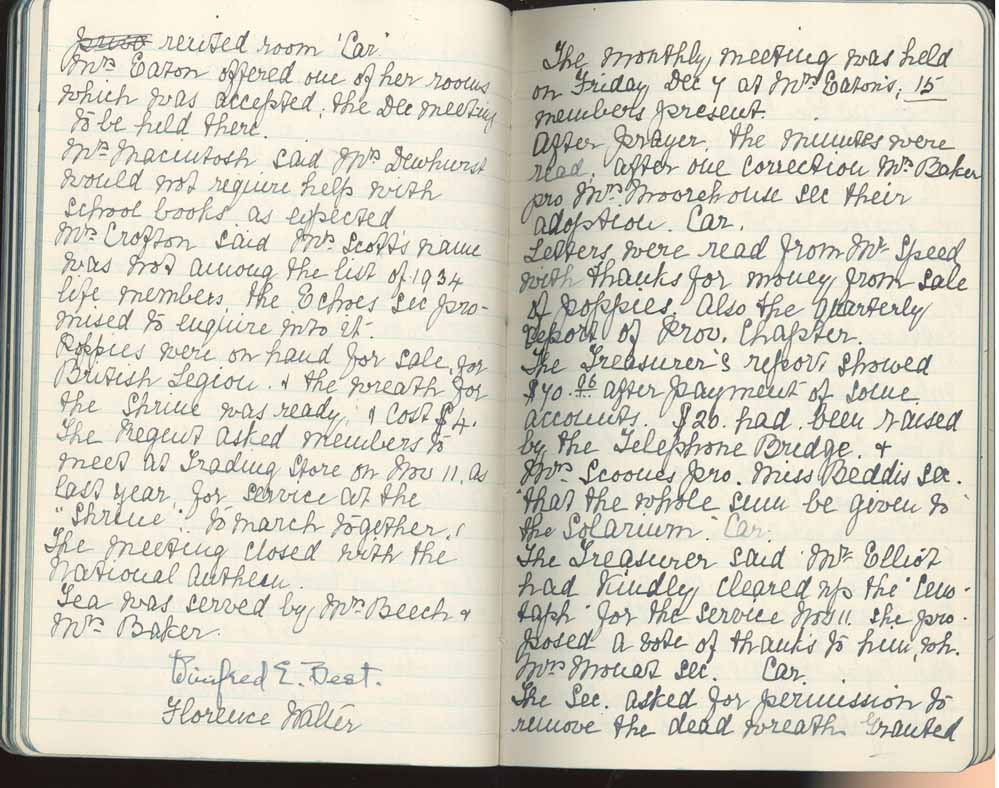 rented room 'Car'
Mrs Eaton offered one of her rooms
which was accepted, the Dec meeting
to be held there.
Mrs Macintosh said Mrs Dewhurst
would not require help with
school books as expected
Mrs Crofton said Mrs Scott's name
was not among the list of 1934
life members, the Echoes Sec pro-
mised to enquire into it.
Poppies were on hand for sale, for
British Legion. & the wreath for
the Shrine was ready, & cost $4.
The Regent asked members to
meet at Trading Store on Nov 11. as
last year for service at the
"Shrine" to march together.
The meeting closed with the
National Anthem.
Tea was served by Mrs Beech &
Mrs Baker.
Winifred E. Best.
Florence Walter
The monthly meeting was held
on Friday Dec 7 at Mrs Eaton's, 15
members present.
After prayer, the minutes were
read, after one correction Mrs Baker
pro Mrs Moorehouse sec their
adoption. Car.
Letters were read from Mr Speed
with thanks for money from sale
of poppies, also the quarterly
report of Prov. Chapter.
The Treasurer's report showed
$70.06 after payment of some
accounts. $20. had been raised
by the Telephone Bridge. &
Mrs Scoones pro. Miss Beddis sec.
that the whole sum be given to
the Solarium. Car.
The Treasurer said Mr Elliot
had kindly cleared up the "Ceno-
taph" for the service Nov 11. she pro-
posed a vote of thanks to him, wh.
Mrs Mouat sec. Car.
The Sec. asked for permission to
remove the dead wreath. Granted